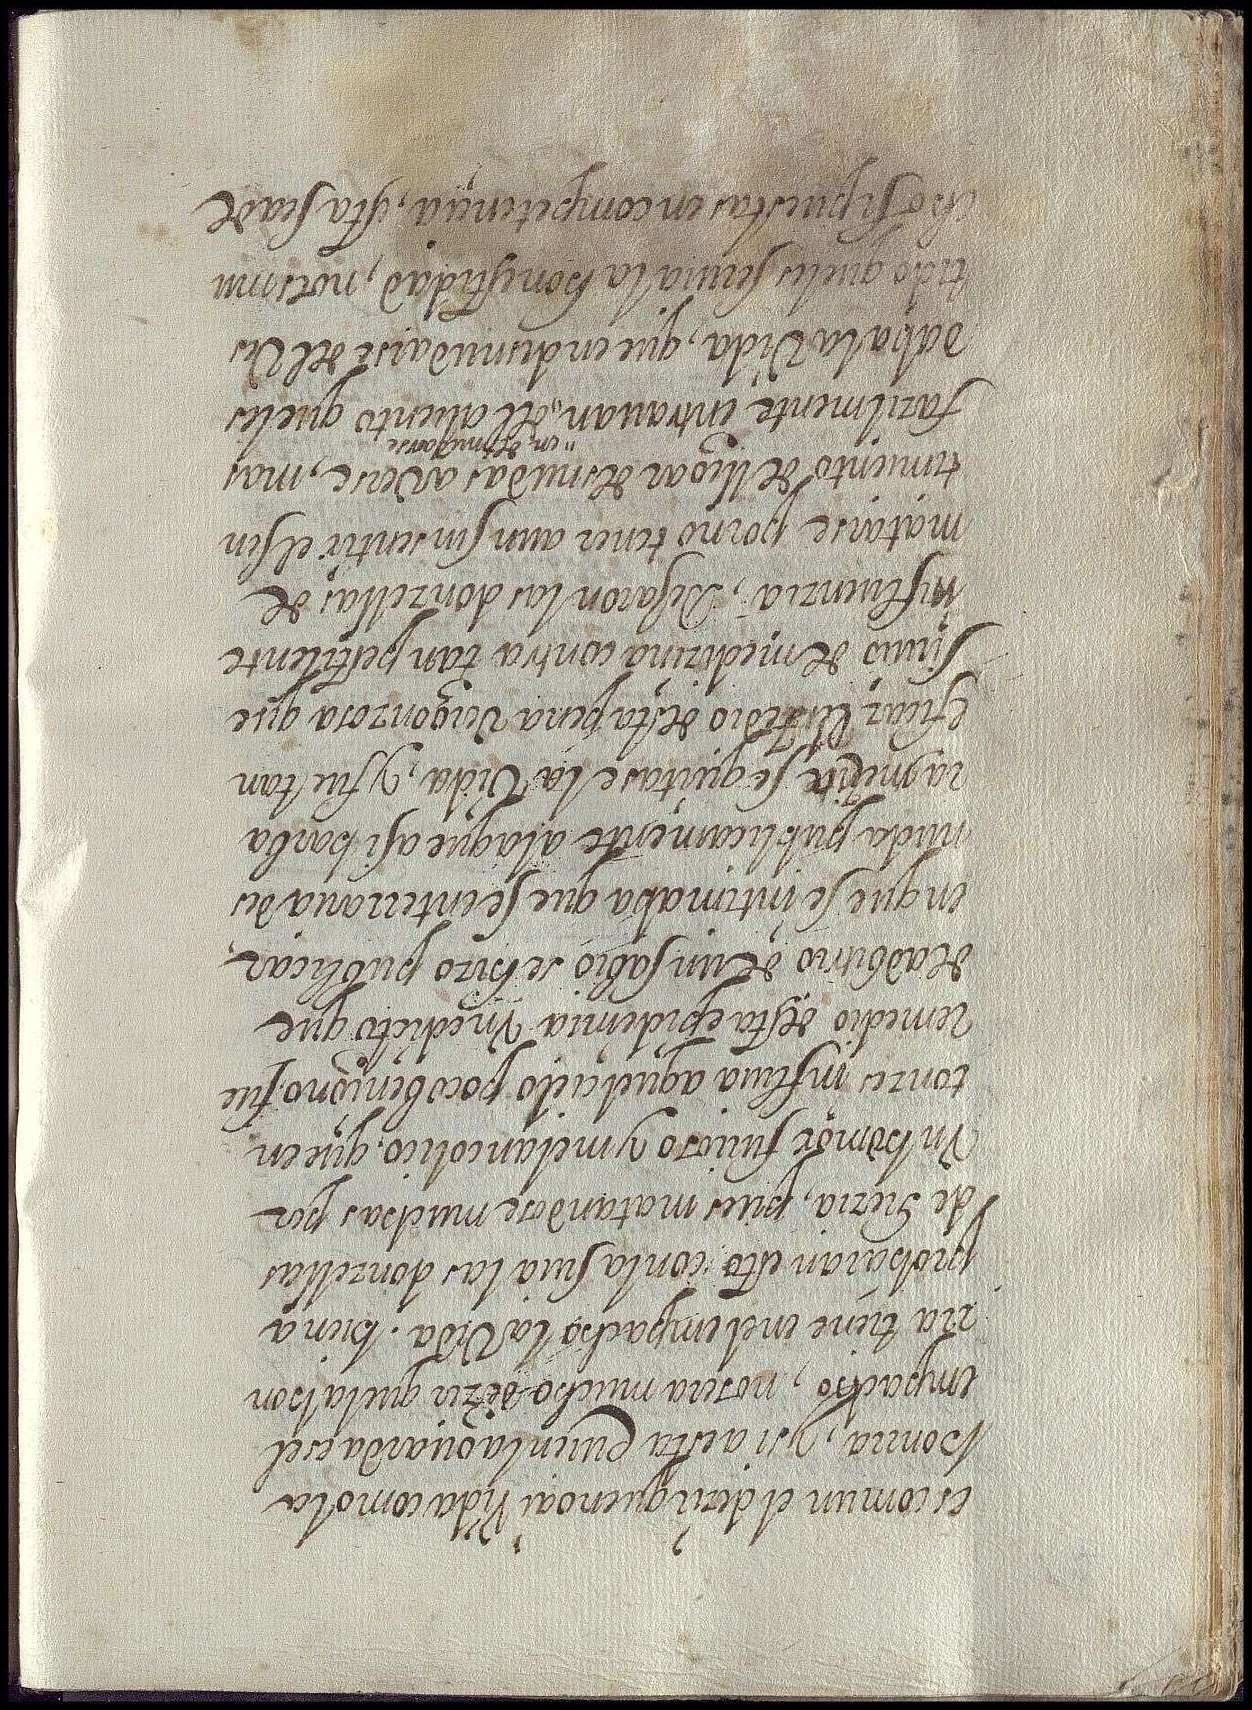 es comun el dezir que no ai Vida como la
honrra, y si a esta quien la guarda es el
empacho, no sera mucho dezir que la hon
rra tiene en el empacho la Vida. bien a
probaran esto con la suia las donzellas
de Grezia, pues matandose muchas por
Vn homor furioso y melancolico, que en
tonzes influia aquel cielo poco benigno, fue
remedio desta epidemia Vn edicto que
de adbitrio de un sabio se hizo publicar,
en que se intimaba que se enterraria des
nuda publicamente a la que asi barba
ramente se quitase la Vida, y fue tan
eficaz remedio desta pena Vergonzosa que
siruio de medizina contra tan pestilente
influenzia, Dejaron las donzellas de
matarse por no tener aun sin sentir el sen
timiento de llegar desnudas a Verse, mas
en desnudarse
fazilmente entrauan, del aliento que les
daba la Vida, que en desnudarse del Ves
tido que les seruia la honestidad, not es mu
cho si puestas en competencia, esta sea de